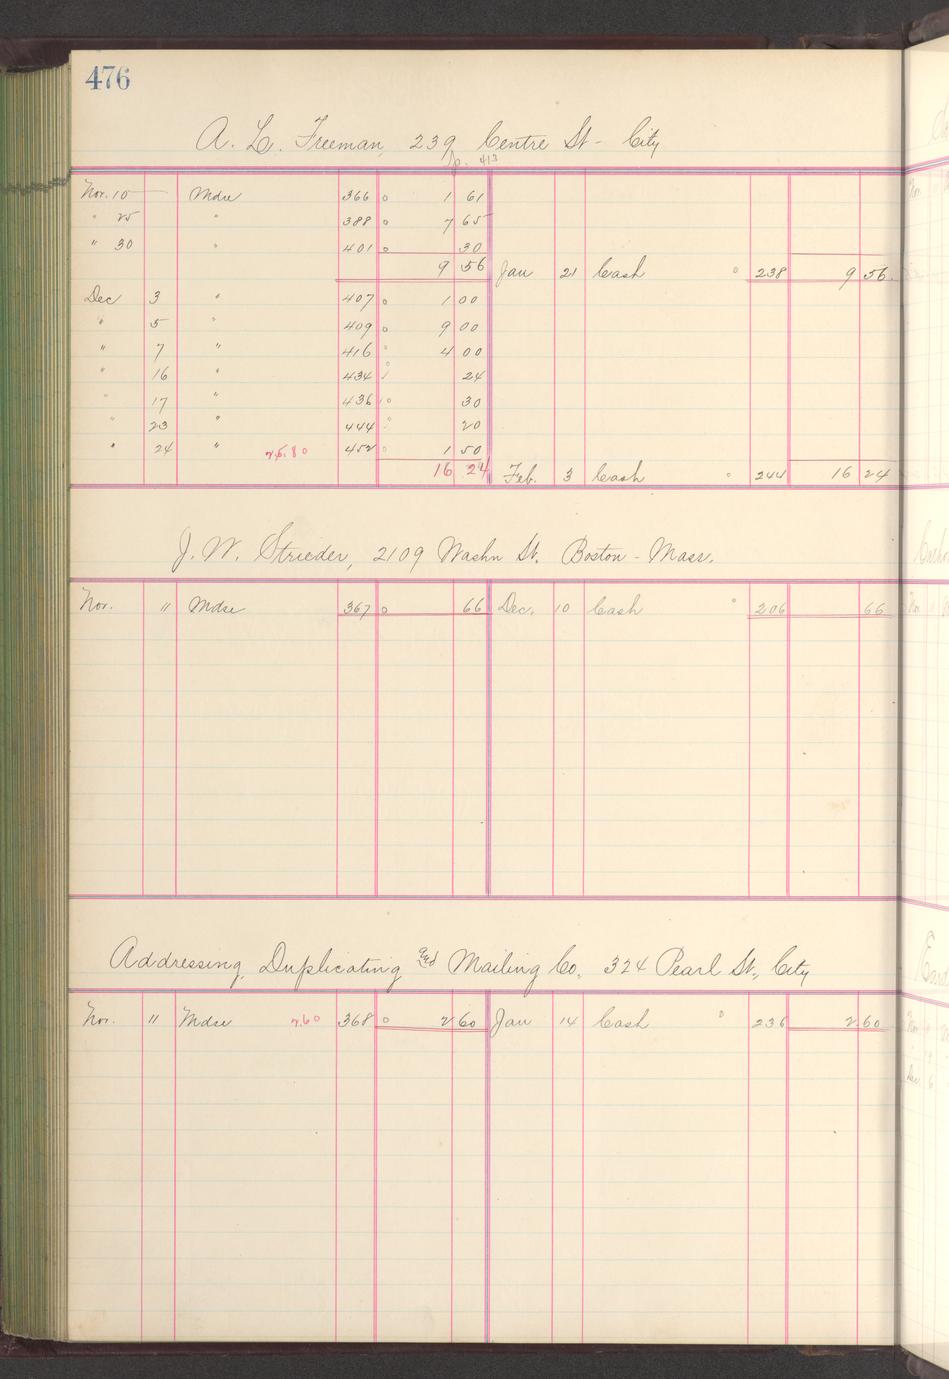 476
A. L. Freeman, 239 Centre St - City
p. 413
Nov. 10 Mdse 366 o 1 61
" 25 " 388 o 7 65
" 30 " 401 o 30
9 56 Jan 21 Cash o 238 9 56
Dec 3 " 407 o 1 00
" 5 " 409 o 9 00
" 7 " 416 o 4 00
" 16 " 434 24
" 17 " 436 o 30
" 23 " 444 20
" 24 " 25.80 452 o 1 50
16 24 Feb. 3 Cash o 244 16 24
J. W. Strieder, 2109 Washn St. Boston - Mass.
Nov. 11 Mdse 367 o 66 Dec. 10 Cash o 206 66
Addressing, Duplicating and Mailing Co. 324 Pearl St., City
Nov. 11 Mdse 2.60 368 o 2 60 Jan 14 Cash o 236 2.60